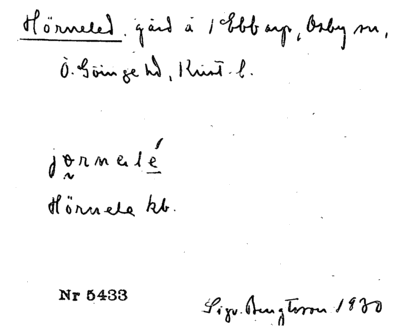 Hörneled. gård å 1 Ebbarp, Osby sn,
Ö. Göinge hd, Krist. l.
jo̰rnelé
Hörnele kb.
Nr 5433
Sigv. Bengtsson 1930